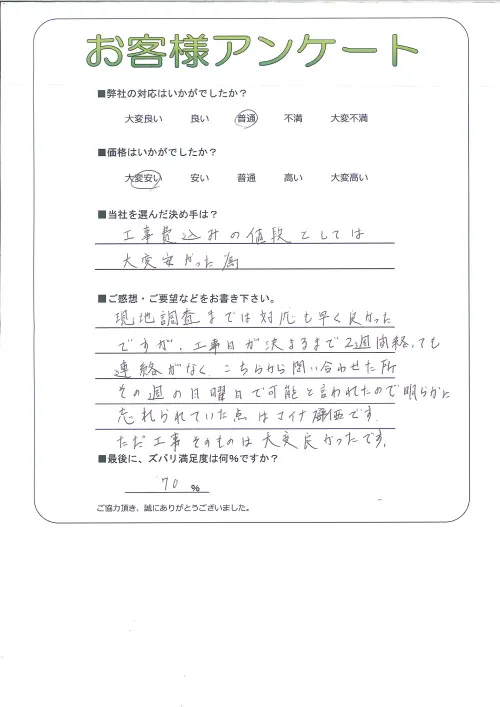 お客様アンケート
■弊社の対応はいかがでしたか？
大変良い 良い 普通 不満 大変不満
■価格はいかがでしたか？
大変安い 安い 普通 高い 大変高い
■当社を選んだ決め手は？
工事費込みの値段としては
大変安かった為
■ご感想・ご要望などをお書き下さい。
現地調査までは対応も早く良かった
ですが、工事日が決まるまで2週間経っても
連絡がなく、こちらから問い合わせた所
その週の日曜日で可能と言われたので明らかに
忘れられていた点はマイナ評価です。
ただ工事そのものは大変良かったです。
■最後に、ズバリ満足度は何％ですか？
70 %
ご協力頂き、誠にありがとうございました。